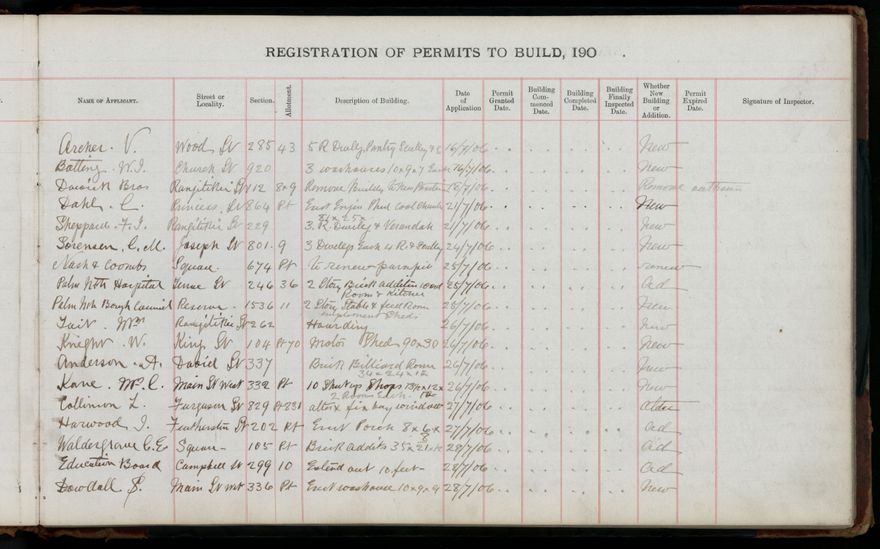 REGISTRATION OF PERMITS TO BUILD, 190 .
Name of Applicant. Street or Locality. Section. Allotment. Description of Building. Date of Application Permit Granted Date. Building Commenced Date. Building Completed Date. Building Finally Inspected Date. Whether New Building or Addition. Permit Expired Date. Signature of Inspector.
Archer. V. Wood St 285 43 5 R Dwellg, Pantry Scullery 16/7/06 New
Batting. W.J. Church St 920 3 washouses 10x9x7 Each 16/7/06 New
Bros Rangitikei St 112 8&9 Remove Buildg 19/7/06 Remove
Dahl. C. Princess St 864 Pt Erect Engine 21/7/06 New
Sheppard. F.J. Rangitikei St 229 3. R. Dwellg & Verandah 21/7/06 New
Sorensen, C.M. Joseph St 801. 9 3 Dwellgs Each 4 R & Scullery 24/7/06 New
Nash & Coombs Square 674 Pt To renew parapet 25/7/06 renew
Palm Nth Hospital St 246 36 2 Story Brick addition ward 25/7/06 Ad
Room & Kitchen
Palm Nth Borough Council Reserve 1536 11 2 Story Stable & feed Room 25/7/06 New
implement Sheds
Tait. Wm Rangitikei St 262 Hoarding 26/7/06 New
Knight. W. King St 104 Pt 70 Motor Shed 90x30 26/7/06 New
Anderson. A. David St 337 Brick Billiard Room 26/7/06 New
Kane. C. Main St West 332 Pt 10 Shops 26/7/06 New
2 Rooms Each.
Collinson L. Ferguson St 829 Pt 231 alter & fix bay window 27/7/06 Alter
Harwood J. Featherston St 202 Pt Erect Porch 8x6x8 27/7/06 ad
Waldegrave C.E Square 105 Pt Brick addits 28/7/06 Ad
Education Board Campbell St 299 10 Extend out 10 feet 28/7/06 Ad
Dowdall S. Main St West 336 Pt Erect washouse 10x9x9 28/7/06 New